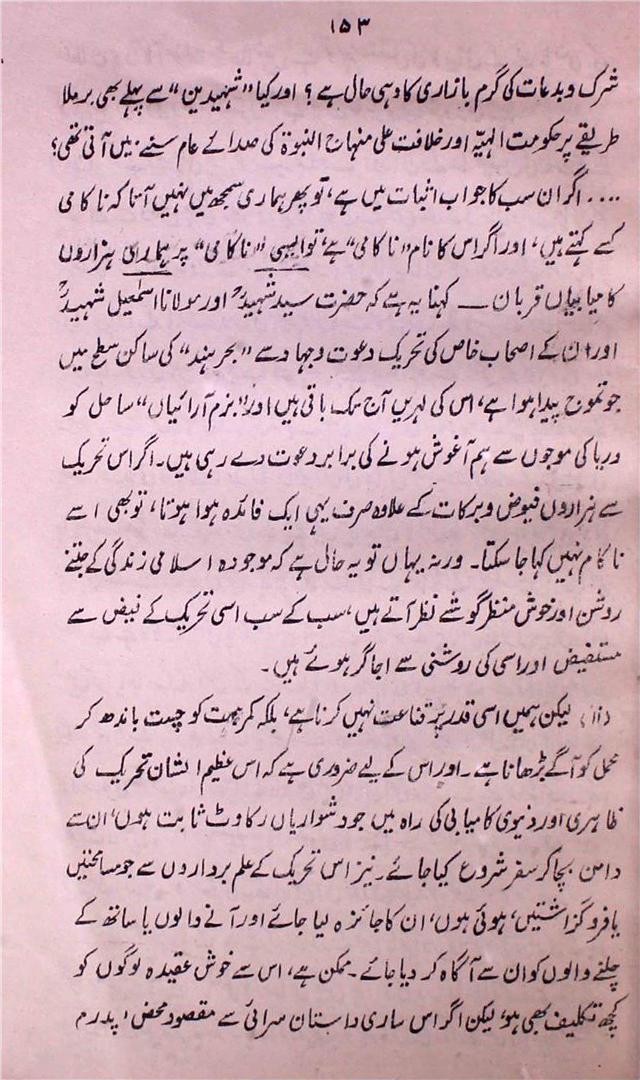 ۱۵۳
شرک و بدعات کی گرم بازاری کا وہی حال ہے؟ اور کیا "شہیدین" سے پہلے بھی برملا
طریقے پر حکومت الٰہیہ اور خلافت علی منہاج النبوۃ کی صدائے عام سننے میں آتی تھی؟
.... اگر ان سب کا جواب اثبات میں ہے، تو پھر ہماری سمجھ میں نہیں آتا کہ ناکامی
کسے کہتے ہیں، اور اگر اس کا نام "ناکامی" ہے، تو ایسی "ناکامی" پر ہماری ہزاروں
کامیابیاں قربان ــــ کہنا یہ ہے کہ حضرت سید شہیدؒ اور مولانا اسمٰعیل شہیدؒ
اور ان کے اصحاب خاص کی تحریک دعوت وجہاد سے "بحر ہند" کی ساکن سطح میں
جو تموج پیدا ہوا ہے، اس کی لہریں آج تک باقی ہیں اور "بزم آرائیاں" ساحل کو
دریا کی موجوں سے ہم آغوش ہونے کی برابر دعوت دے رہی ہیں۔ اگر اس تحریک
سے ہزاروں فیوض و برکات کے علاوہ صرف یہی ایک فائدہ ہوا ہوتا، تو بھی اسے
ناکام نہیں کہا جا سکتا۔ ورنہ یہاں تو یہ حال ہے کہ موجودہ اسلامی زندگی کے جتنے
روشن اور خوش منظر گوشے نظر آتے ہیں، سب کے سب اسی تحریک کے فیض سے
مستفیض اور اسی کی روشنی سے اجاگر ہوئے ہیں۔
لیکن ہمیں اسی قدر پر قناعت نہیں کرنا ہے، بلکہ کمر ہمت کو چست باندھ کر
عمل کو آگے بڑھانا ہے۔ اور اس کے لیے ضروری ہے کہ اس عظیم الشان تحریک کی
ظاہری اور دنیوی کامیابی کی راہ میں جو دشواریاں رکاوٹ ثابت ہوں، ان سے
دامن بچا کر سفر شروع کیا جائے۔ نیز اس تحریک کے علم برداروں سے جو مسامحتیں
یا فروگزاشتیں، ہوئی ہوں، ان کا جائزہ لیا جائے اور آنے والوں یا ساتھ کے
چلنے والوں کو ان سے آگاہ کر دیا جائے۔ ممکن ہے، اس سے خوش عقیدہ لوگوں کو
کچھ تکلیف بھی ہو، لیکن اگر اس ساری داستان سرائی سے مقصود محض "پدرم